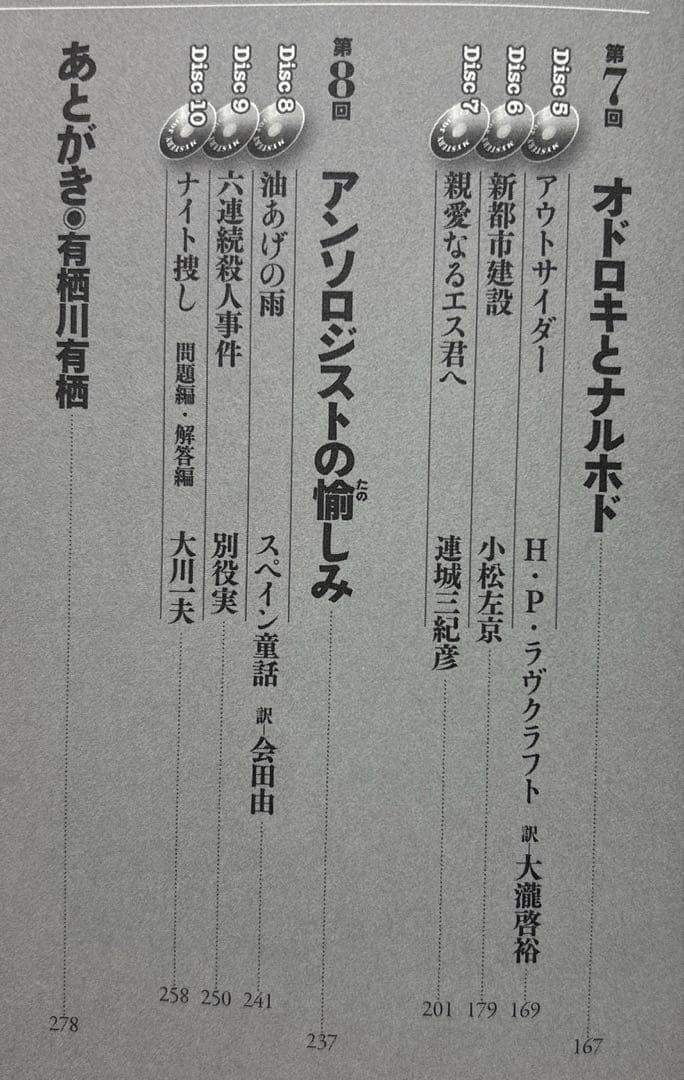 第7回 オドロキとナルホド 167
Disc 5 アウトサイダー H・P・ラヴクラフト 訳―大瀧啓裕 169
Disc 6 新都市建設 小松左京 179
Disc 7 親愛なるエス君へ 連城三紀彦 201
第8回 アンソロジストの愉しみ 237
たの
Disc 8 油あげの雨 スペイン童話 訳―会田由 241
Disc 9 六連続殺人事件 別役実 250
Disc 10 ナイト捜し 問題編・解答編 大川一夫 258
あとがき◉有栖川有栖 278